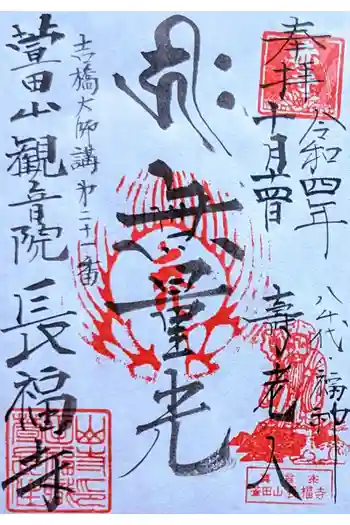 奉拝
令和四年
十月十四日
八千代・福神
壽老人
無量光
吉橋大師講第二十一番
萱田山観音院長福寺
真言宗
萱田山長福寺